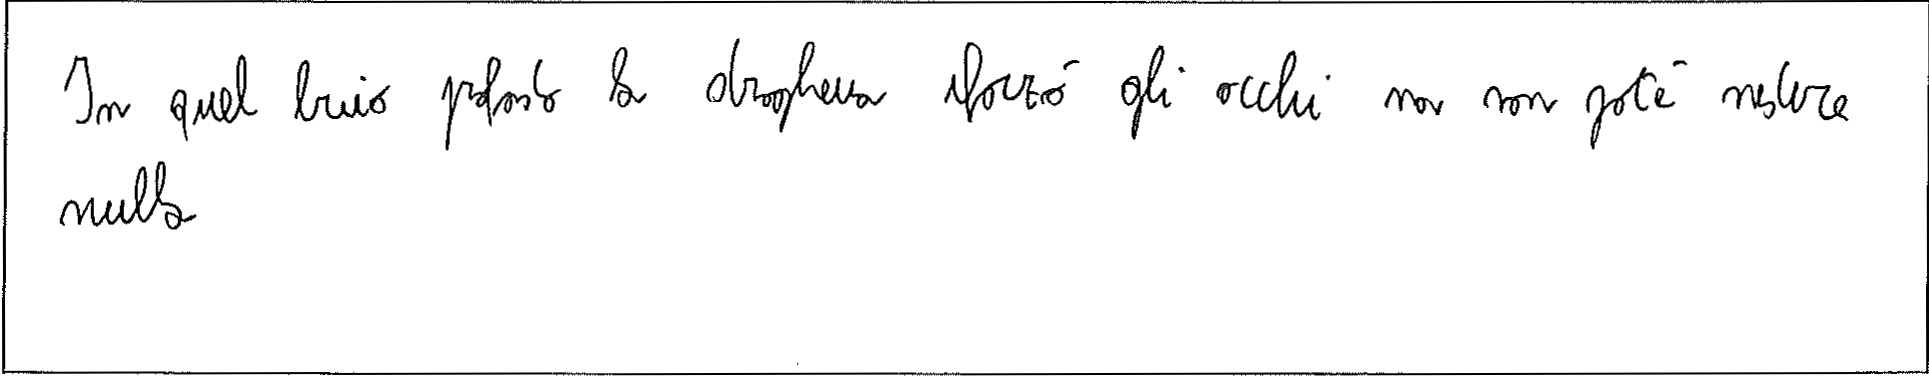 In quel buio pesto la droghiera sforzò gli occhi ma non poté vedere
nulla